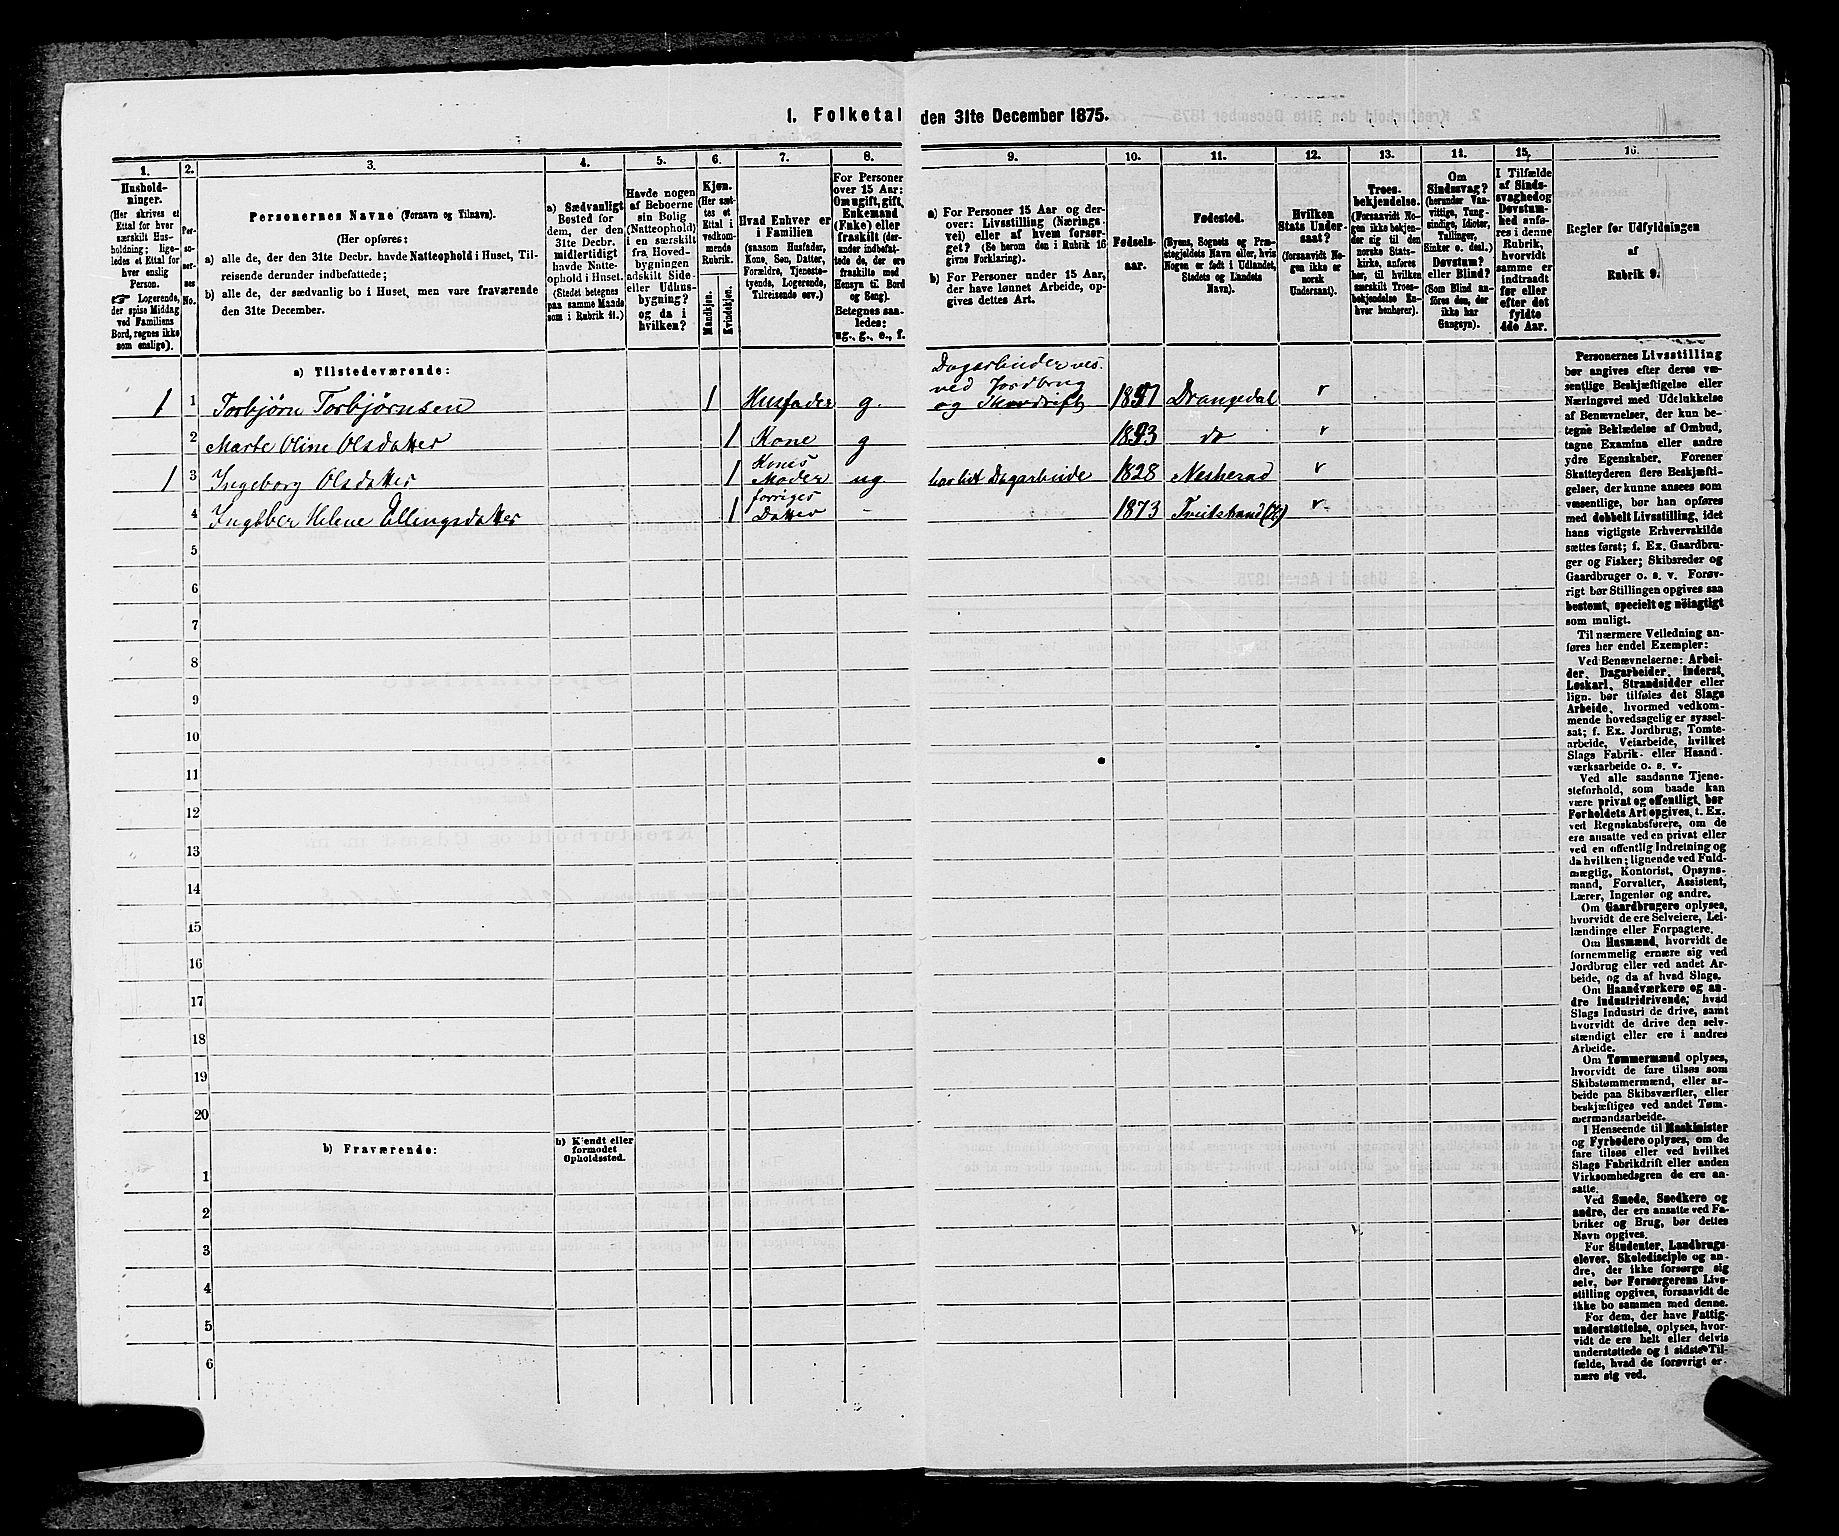 1. Folketal den 31te December 1875.
1.
2.
3.
4.
5.
6.
7.
8.
9.
10.
11.
12.
13.
14.
15.
16.
Hushold-
ninger.
(Her skrives et
Ettal for hver
særskilt Hus-
holdning; lige-
ledes et Ettal for
hver enslig
Person.
☞ Logerende,
der spise Middag
ved Familiens
Bord, regnes ikke
som enslige).
Per-
soner-
nes
No.
Personernes Navne (Fornavn og Tilnavn).
(Her opføres:
a) alle de, der den 31te Decbr. havde Natteophold i Huset, Til-
reisende derunder indbefattede;
b) alle de, der sædvanlig bo i Huset, men vare fraværende
den 31te December.
a) Sædvanligt
Bosted for
dem, der den
31te Decbr.
midlertidigt
havde Natte-
ophold i Huset.
(Stedet betegnes
paa samme Maade
som i Rubrik 11.)
Havde nogen
af Beboerne
sin Bolig
(Natteophold)
i en særskilt
fra Hoved-
bygningen
adskilt Side-
eller Udhus-
bygning?
og da i
hvilken?
Kjøn.
(Her sæt-
tes et
Ettal i
vedkom-
mende
Rubrik.
Mandkjøn.
Kvindekjøn.
Hvad Enhver er
i Familien
(saasom Husfader,
Kone, Søn, Datter,
Forældre, Tjeneste-
tyende, Logerende,
Tilreisende osv.)
For Personer
over 15 Aar:
Om ugift, gift,
Enkemand
(Enke) eller
fraskilt (der-
under indbefat-
tede de, der ere
fraskilte med
Hensyn til Bord
og Seng).
Betegnes saa-
ledes:
ug., g., e., f.
a) For Personer 15 Aar og der-
over: Livsstilling (Nærings-
vei) eller af hvem forsør-
get? (Se herom den i Rubrik 16
givne Forklaring).
b) For Personer under 15 Aar,
der have lønnet Arbeide, op-
gives dettes Art.
Fødsels-
aar.
Fødested.
(Byens, Sognets og Præ-
stegjeldets Navn eller, hvis
Nogen er født i Udlandet,
Stedets og Landets
Navn).
Hvilken
Stats Under-
saat?
(forsaavidt No-
gen ikke er
norsk
Undersaat).
Troes-
bekjendelse.
(Forsaavidt No-
gen ikke bekjen-
der sig til den
norske Stats-
kirke, anføres
her, til hvilken
særskilt Troes-
bekjendelse En-
hver henhører).
Om
Sindssvag?
(herunder Van-
vittige, Tung-
sindige, Idioter,
Tullinger,
Sinker o. desl.)
Døvstum?
eller Blind?
(Som Blind an-
føres den, der
ikke har
Gangsyn).
I Tilfælde
af Sinds-
svaghed og
Døvstum-
hed anfø-
res i denne
Rubrik,
hvorvidt
samme er
indtraadt
før eller
efter det
fyldte
4de Aar.
Regler for Udfyldningen
af
Rubrik 9.
a) Tilstedeværende:
1 1 Torbjørn Torbjørnsen 1 Husfader g. Dagarbeider ves. ved Jordbrug og Skovdrift Drangedal
2 Marte Oline Olsdatter 1 Kone g do
1 3 Ingeborg Olsdatter 1 Kones Moder ug 1828 Nesherad
4 Helene Ellingsdatter 1 forriges Datter - 1873
5
6
7
8
9
10
11
12
13
14
15
16
17
18
19
20
b) Fraværende:
b) Kjendt eller
formodet
Opholdssted.
1
2
3
4
5
6
Personernes Livsstilling
bør angives efter deres væ-
sentlige Beskjæftigelse eller
Næringsvei med Udelukkelse
af Benævnelser, der kun be-
tegne Beklædelse af Ombud,
tagne Examina eller andre
ydre Egenskaber. Forener
Skatteyderen flere Beskjæfti-
gelser, der kunne ansees som
væsentlige, bør han opføres
med dobbelt Livsstilling, idet
hans vigtigste Erhvervskilde
sættes først; f. Ex. Gaardbru-
ger og Fisker; Skibsreder og
Gaardbruger o. s. v. Forøv-
rigt bør Stillingen opgives saa
bestemt, specielt og nøiagtigt
som muligt.
Til nærmere Veiledning an-
føres her endel Exempler:
Ved Benævnelserne: Arbei-
der, Dagarbeider, Inderst,
Løskarl, Strandsidder eller
lign. bør tilføies det Slags
Arbeide, hvormed vedkom-
mende hovedsagelig er syssel-
sat; f. Ex. Jordbrug, Tomte-
arbeide, Veiarbeide, hvilket
Slags Fabrik- eller Haand-
værksarbeide o. s. v.
Ved alle saadanne Tjene-
steforhold, som baade kan
være privat og offentligt, bør
Forholdets Art opgives, t. Ex.
ved Regnskabsførere, om de
ere ansatte ved en privat eller
ved en offentlig Indretning og
da hvilken; lignende ved Fuld-
mægtig, Kontorist, Opsyns-
mand, Forvalter, Assistent,
Lærer, Ingeniør og andre.
Om Gaardbrugere oplyses,
hvorvidt de ere Selveiere, Lei-
lændinge eller Forpagtere.
Om Husmænd, hvorvidt de
fornemmelig ernære sig ved
Jordbrug eller ved andet Ar-
beide, og da af hvad Slags.
Om Haandværkere og an-
dre Industridrivende, hvad
Slags Industri de drive, samt
hvorvidt de drive den selv-
stændigt eller ere i andres
Arbeide.
Om Tømmermænd oplyses,
hvorvidt de fare tilsøs som
Skibstømmermænd, eller ar-
beide paa Skibsværfter, eller
beskjæftiges ved andet Tøm-
mermandsarbeide.
I Henseende til Maskinister
og Fyrbødere oplyses, om de
fare tilsøs eller ved hvilket
Slags Fabrikdrift eller anden
Virksomhedsgren de ere an-
satte.
Ved Smede, Snedkere og
andre, der ere ansatte ved Fa-
briker og Brug, bør dettes
Navn opgives.
For Studenter, Landbrugs-
elever, Skoledisciple og an-
dre, der ikke forsørge sig
selv, bør Forsørgerens Livs-
stilling opgives, forsaavidt de
ikke bo sammen med denne.
For dem, der have Fattig-
understøttelse, oplyses, hvor-
vidt de ere helt eller delvis
understøttede og i sidste Til-
fælde, hvad de forøvrigt er-
nære sig ved.